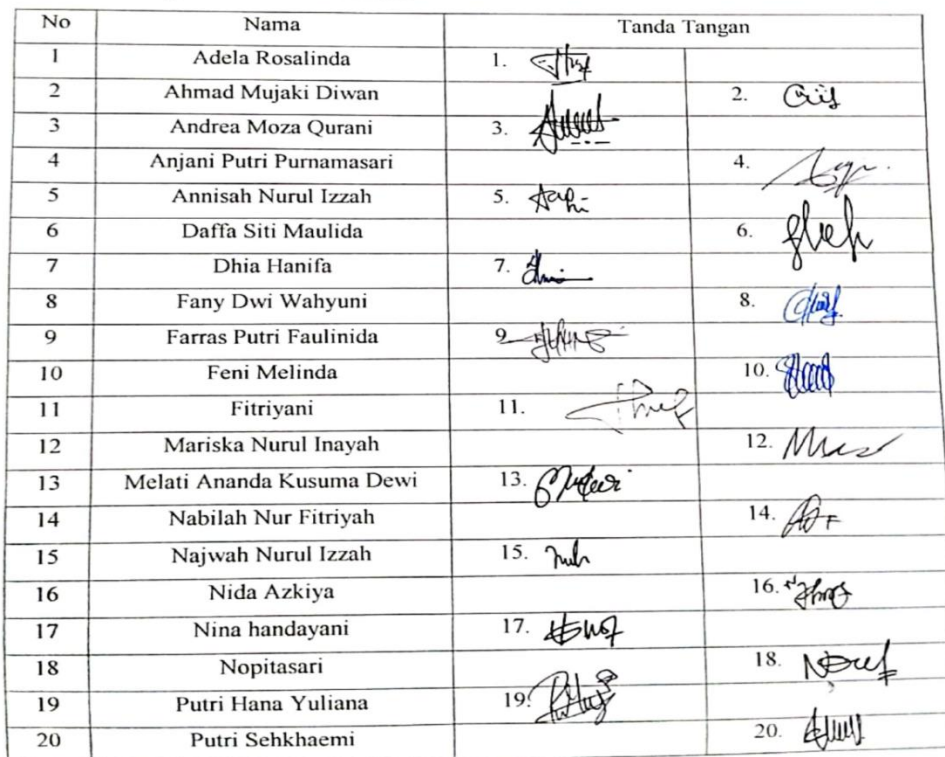 No Nama Tanda Tangan
1 Adela Rosalinda 1.
2 Ahmad Mujaki Diwan 2.
3 Andrea Moza Qurani 3.
4 Anjani Putri Purnamasari 4.
5 Annisah Nurul Izzah 5.
6 Daffa Siti Maulida 6.
7 Dhia Hanifa 7.
8 Fany Dwi Wahyuni 8.
9 Farras Putri Faulinida 9
10 Feni Melinda 10.
11 Fitriyani 11.
12 Mariska Nurul Inayah 12.
13 Melati Ananda Kusuma Dewi 13.
14 Nabilah Nur Fitriyah 14.
15 Najwah Nurul Izzah 15.
16 Nida Azkiya 16.
17 Nina handayani 17.
18 Nopitasari 18.
19 Putri Hana Yuliana 19.
20 Putri Sehkhaemi 20.